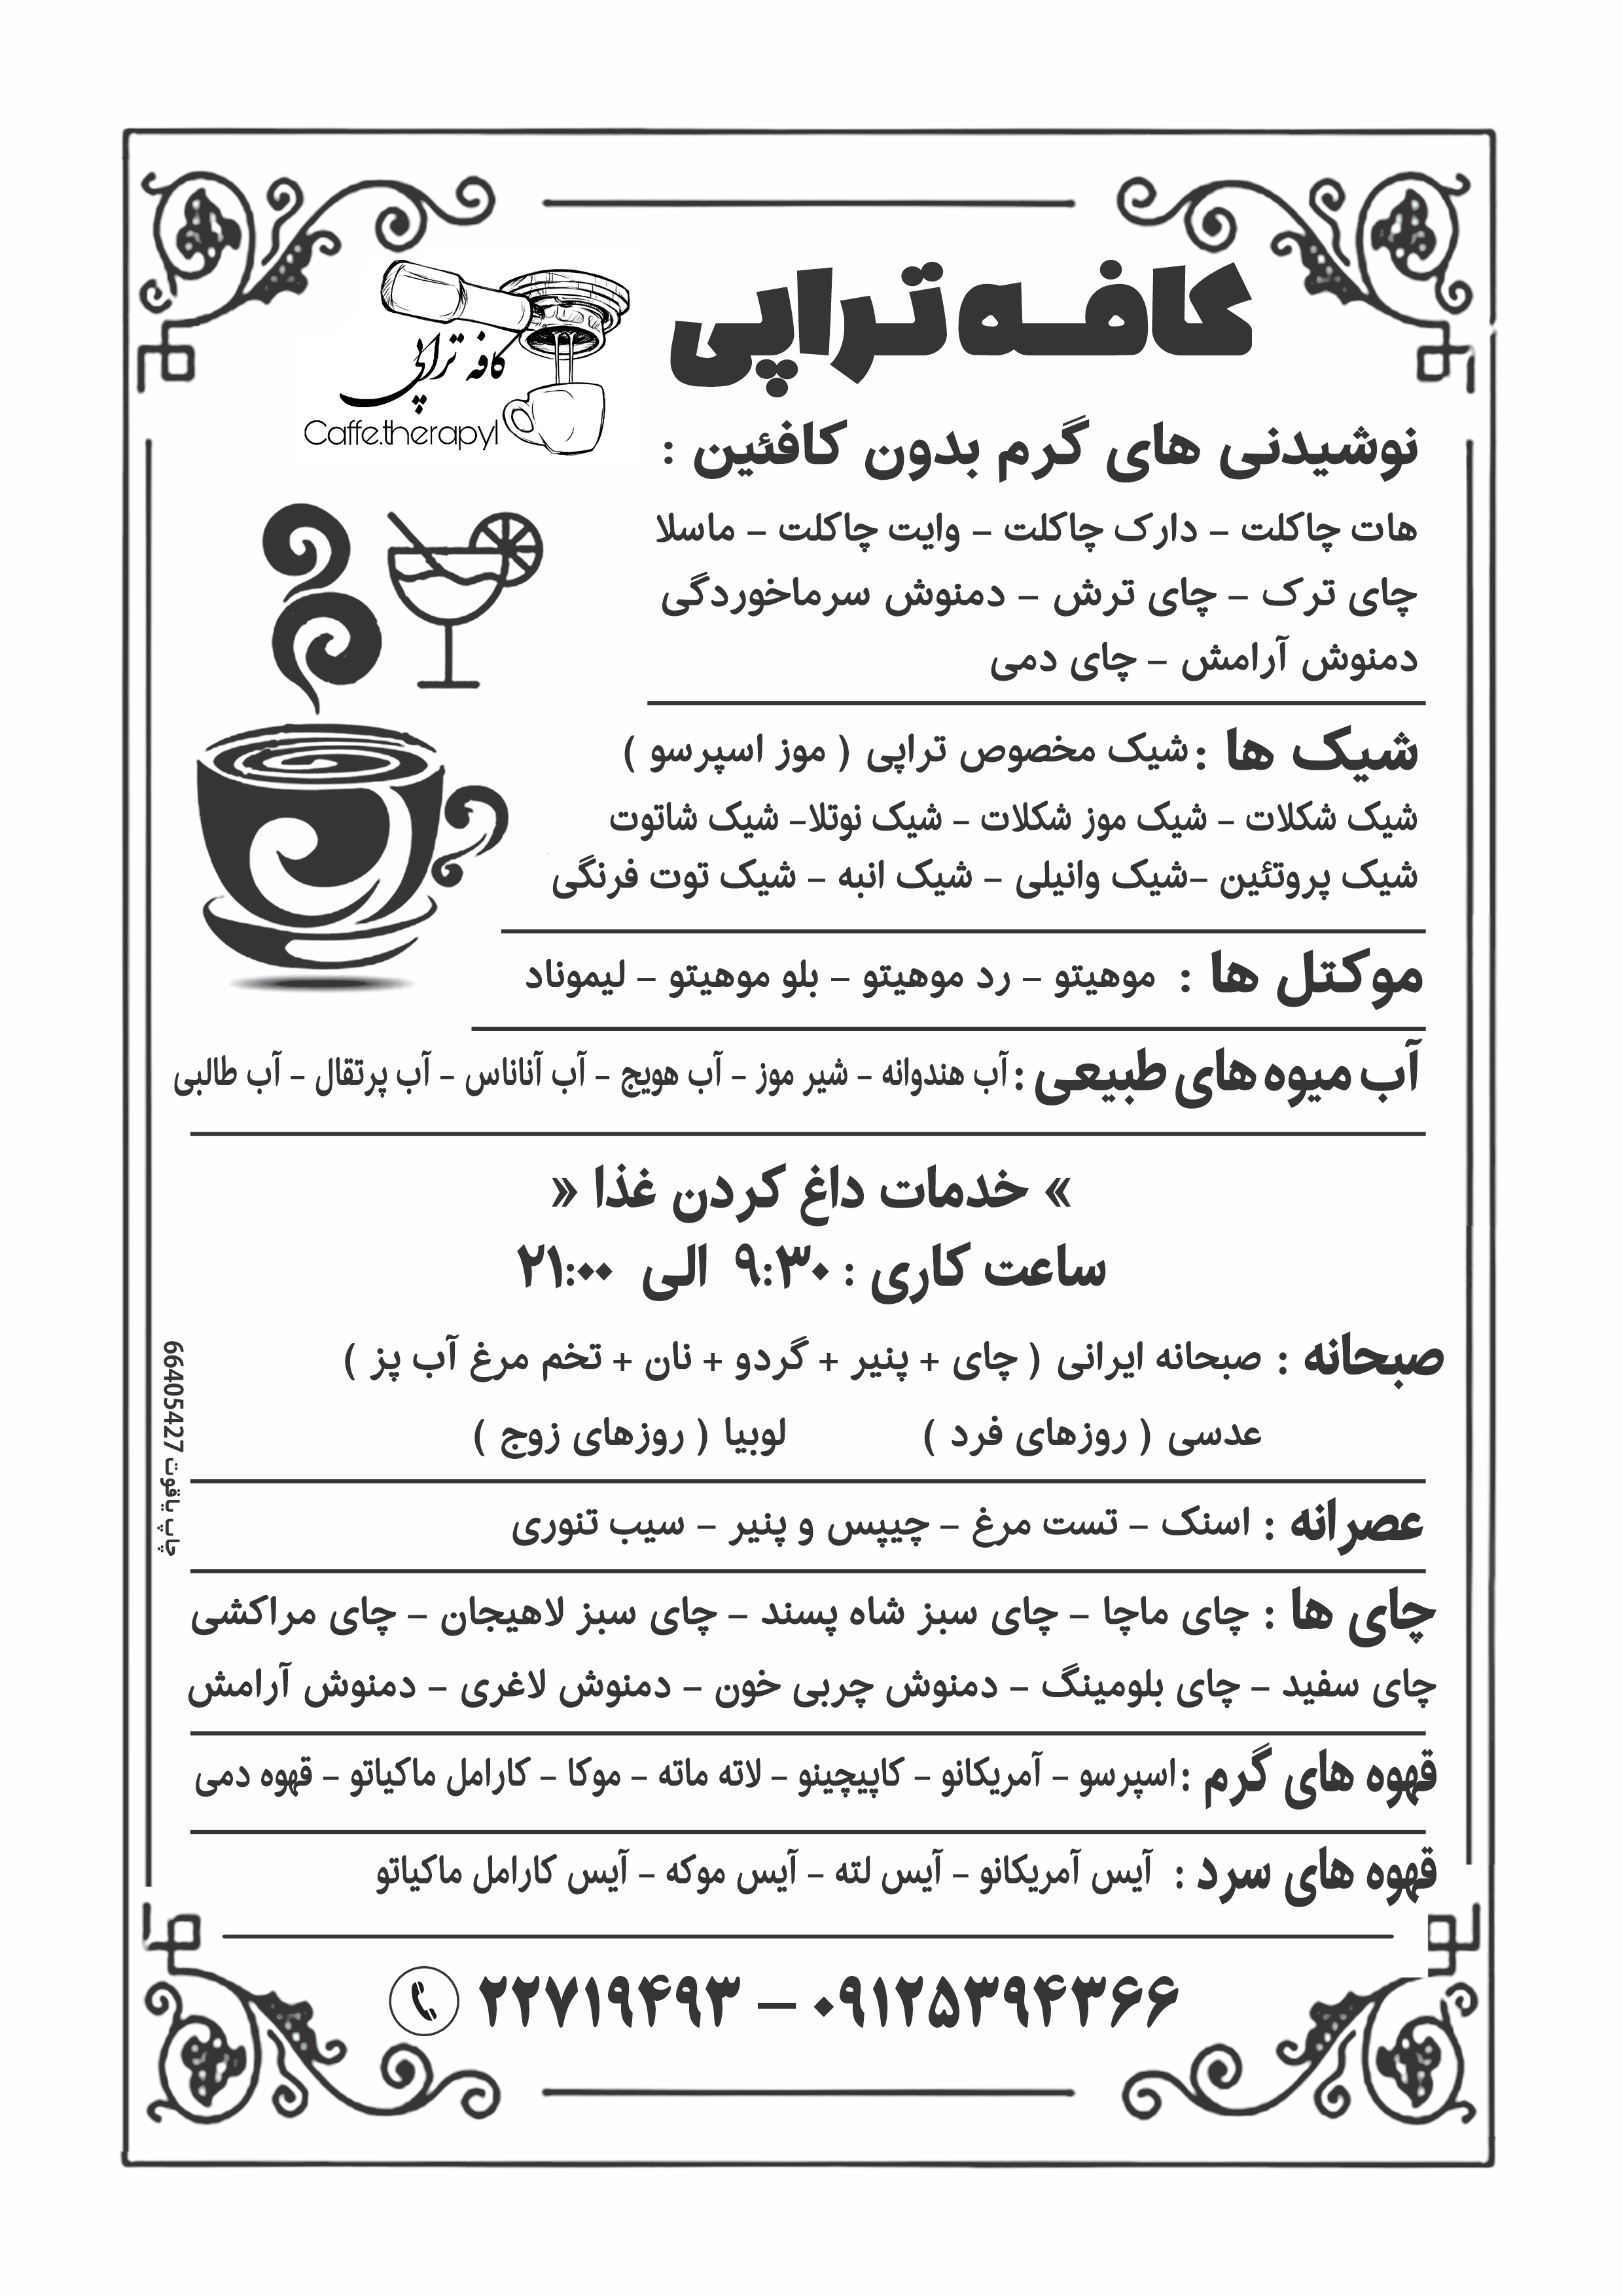 کافه تراپی
کافه تراپی
Caffe.therapyl
نوشیدنی های گرم بدون کافئین :
هات چاکلت – دارک چاکلت – وایت چاکلت – ماسلا
چای ترک – چای ترش – دمنوش سرماخوردگی
دمنوش آرامش – چای دمی
شیک ها : شیک مخصوص تراپی ( موز اسپرسو )
شیک شکلات – شیک موز شکلات – شیک نوتلا– شیک شاتوت
شیک پروتئین –شیک وانیلی – شیک انبه – شیک توت فرنگی
موکتل ها : موهیتو – رد موهیتو – بلو موهیتو – لیموناد
آب میوه های طبیعی : آب هندوانه – شیر موز – آب هویج – آب آناناس – آب پرتقال – آب طالبی
» خدمات داغ کردن غذا «
ساعت کاری : ۹:۳۰ الی ۲۱:۰۰
صبحانه : صبحانه ایرانی ( چای + پنیر + گردو + نان + تخم مرغ آب پز )
عدسی ( روزهای فرد ) لوبیا ( روزهای زوج )
عصرانه : اسنک – تست مرغ – چیپس و پنیر – سیب تنوری
چای ها : چای ماچا – چای سبز شاه پسند – چای سبز لاهیجان – چای مراکشی
چای سفید – چای بلومینگ – دمنوش چربی خون – دمنوش لاغری – دمنوش آرامش
قهوه های گرم : اسپرسو – آمریکانو – کاپیچینو – لاته ماته – موکا – کارامل ماکیاتو – قهوه دمی
قهوه های سرد : آیس آمریکانو – آیس لته – آیس موکه – آیس کارامل ماکیاتو
۰۹۱۲۵۳۹۴۳۶۶ – ۲۲۷۱۹۴۹۳
چاپ یاقوت 66405427